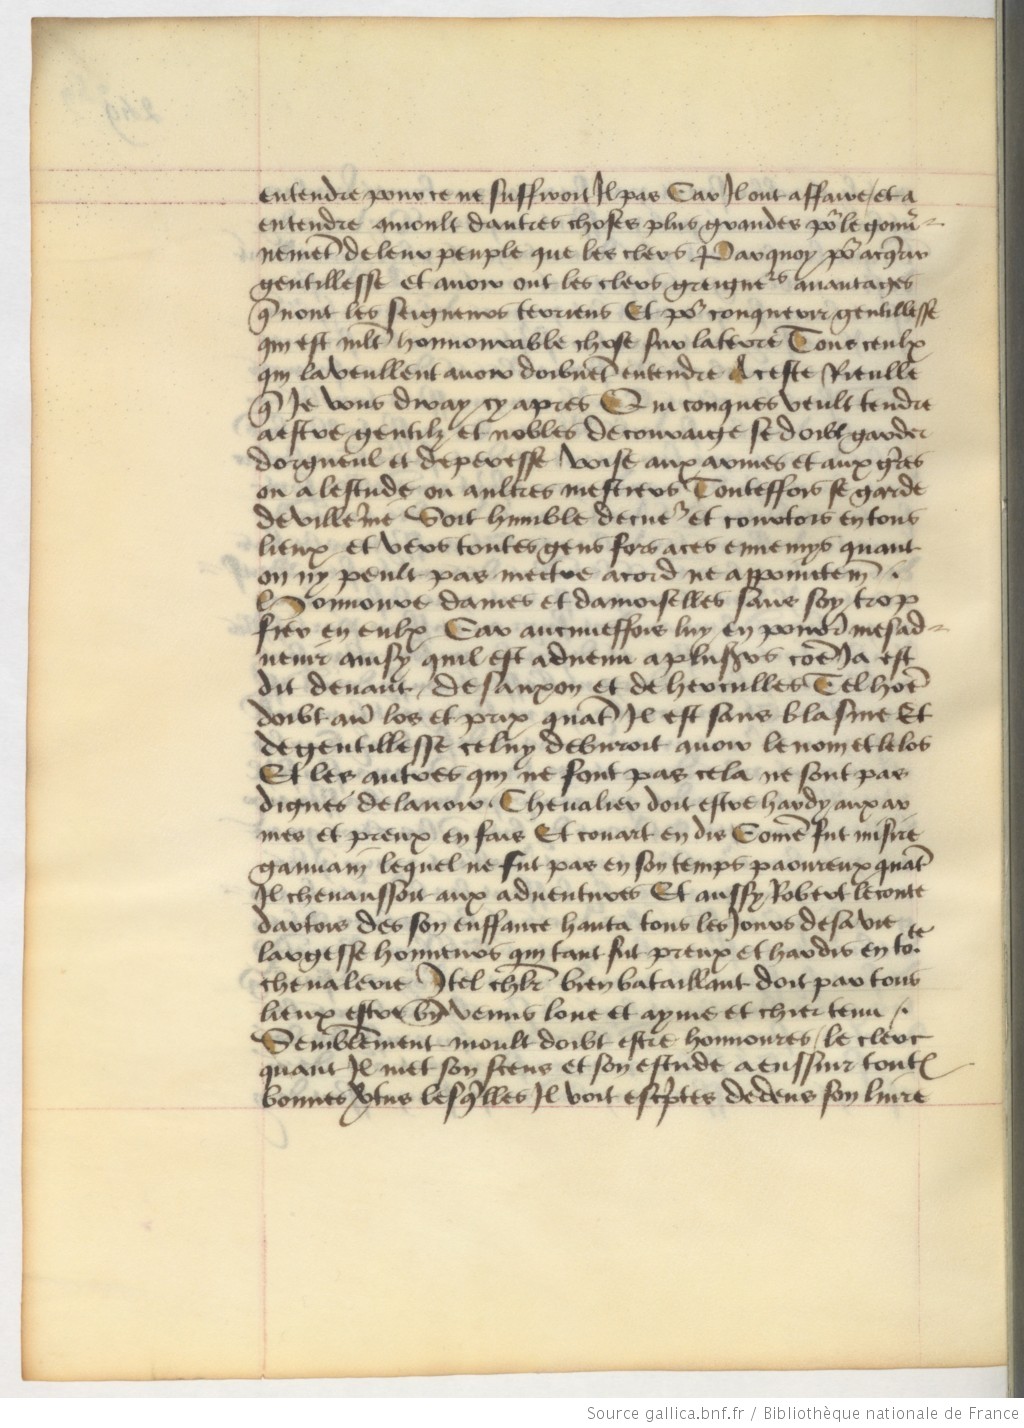 entendre pour ce ne suffiroit Il pas Car Ilont affaire / et a
entendre amoult dautres choses plus grandes pour le gouuer-
nement de leur peuple que les clers Parquoy pour acquerir
gentillesse et auoir ont les clers greigneurs auantages
que nont les seigneurs terriens Et pour conquerir gentillesse
qui est moult honnourable chose sur la terre Tous ceulx
qui la veullent auoir doibuent entendre A ceste Rieulle
que Je vous diray cy apres Qui conques veult tendre
a estre gentilz et nobles de couraige se doibt garder
dorgueul et de peresse voise aux armes et aux guerres
ou a lestude ou aultres mestiers Touteffois se garde
de villenie Soit humble de cueur et courtois en tous
lieux et vers toutes gens fors a ces ennemys quant
on ny peult pas mectre acord ne appointement .
Honnoure dames et damoiselles sans soy trop
fier en eulx Car aucuneffois luy en pourroit mesad-
uenir ainsy quil est aduenu a plusieurs come Ja est
dit deuant / de sanxon et de herculles Tel home
doibt auoir los et prix quant Il est sans blasme Et
de gentillesse celuy deburoit auoir le nom et le los
Et les autres qui ne font pas cela ne sont pas
dignes de lauoir . Cheualier doit estre hardy aux ar
mes et preux en fais Et couart en dis Come fut misire
gauuain lequel ne fut pas en son temps paoureux quant
Il cheuaussoit aux aduentures Et aussy Robert le conte
dartois des son enffance hanta tous les Jours de sa vie
largesse honneurs qui tant fut preux et hardis en toute
cheualerie Itel cheualier bien bataillant doit par tous
lieux estre bien venus loue et ayme et chier tenu / .
Semblement moult doibt estre honnoures / le clerc
quant Il met son scens et son estude a enssuir toutes
bonnes vertus lesquelles Il voit escriptes dedens son liure
Source gallica.bnf.fr / Bibliothèque nationale de France